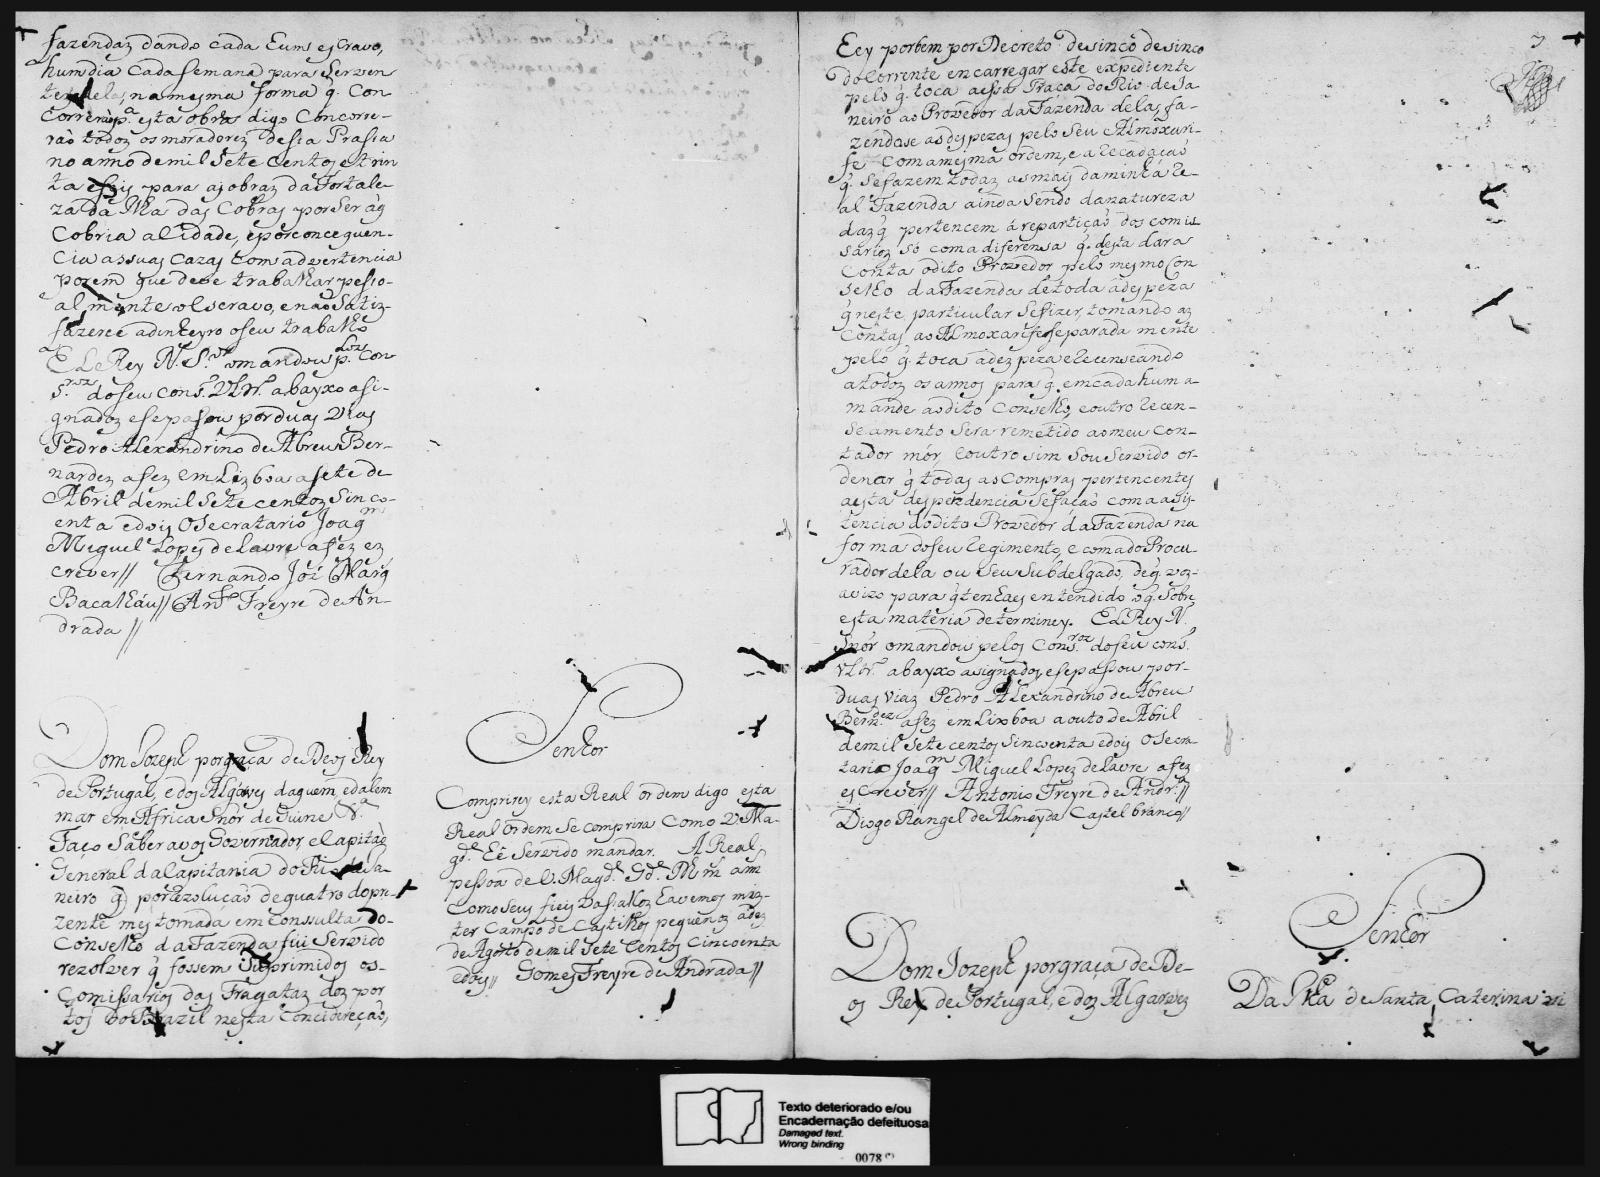 fazendaz dando cada hum escravo,
hum dia cada semana para serven
tes della, na mesma forma q. Con
correndo p.ª esta obra digo Concorre-
raõ todoz os moradorez desta Prassa
no anno de mil sete centos e trin
ta e seis para as obraz da Fortale-
za da Ilha das Cobras por ser a q̃
Cobria a Cidade, e por conceguen-
cia as suas Cazas com advertencia
porem que deve trabalhar pesso-
almente o escravo, e naõ satiz-
fazerce a dinheyro o seu trabalho
El Rey N. S.ºr o mandou p.los Con
s.roz do seu cons.º Ultr.º abayxo asi-
gnados e se pasou por duas vias
Pedro Alexandrino de Abreu Ber-
nardez a fez em Lizboa a sete de
Abril de mil sete centoz sinco-
enta e dois O Secratario Joaq.m
Miguel Lopes de Lavre a fez ez
crever// Fernando Jozé Marq
Bacalháu// An.to Freyre de An-
drada//
Dom Jozeph por graça de Deos Rey
de Portugal, e dos Algarves daquem, e dalem
mar em Africa Snor de Guine &.ª
Faço saber a vos Governador, e Capitaõ
General da Capitania do Rio de Ja-
neiro q̃ por rezoluçaõ de quatro do prê-
zente mes tomada em Conssulta do-
Conselho da Fazenda fui servido
rezolver q̃ fossem suprimidos os-
Comissarios das Fragataz doz por
tos do Brazil nesta Concidereçaõ,
Senhor
Comprirey esta Real ordem digo esta
Real ordem se comprira como V. Ma-
g.de he servido mandar. A Real
pessoa de V. Mag.de G.de D.s m.s an.s
como seus fieis vasalloz havemos mis-
ter Campo de Castilhos pequenoz a dez
de Agosto de mil sete centos cincoenta
e dois// Gomes Freyre de Andrada//
7
Hey por bem por Decreto de sinco de sinco
do Corrente encarregar este expediente
pelo q̃ toca a essa Praça do Rio de Ja
neiro ao Provedor da Fazenda della, fa-
zendose as despezas pelo seu Almoxari-
fe com a mesma ordem, e arecadaçaõ
q̃ se fazem todaz as mais da minha re-
al Fazenda ainda sendo da natureza
daz q̃ pertencem á repartiçaõ dos comis
sarioz só com a diferensa q̃ desta dara
Conta o dito Provedor pelo mesmo Con
selho da Fazenda de toda a despeza
q̃ neste particular se fizer, tomando as
Contas ao Almoxarife separada mente
pelo q̃ toca a dezpeza e recenseando
a todoz os annos para q̃ em cada hum a-
mande ao dito Conselho, e outro recen-
seamento sera remetido ao meu Con-
tador mor, e outro sim sou servido or-
denar q̃ todas as Compras pertencentes
a esta despendencia se façaõ com a asis-
tencia do dito Provedor da Fazenda na
forma do seu regimento, e com a do Procu-
rador dela ou seu subdelgado, de q̃ vos-
avizo para q̃ tenhaes entendido o q̃ sobre
esta materia determiney. El Rey N.
Snor o mandou pelos Cons.roz do seu cons.º
Ultr.º abayxo asignados, e se passou por-
duas vias Pedro Alexandrino de Abreu
Bern.dez a fez em Lixboa a outo de Abril
de mil sete centos sincoenta e dois O Secra-
tario Joaq.m Miguel Lopez de Lavre a fez
escrever// Antonio Freyre de Andr.ª//
Diogo Rangel de Almeyda Castel branco//
Dom Jozeph por graça de De-
os Rey de Portugal, e doz Algarvez
Senhor
Da Ilha de Santa Caterina vi
Texto deteriorado e/ou
Encadernação defeituosa
Damaged text.
Wrong binding
0078